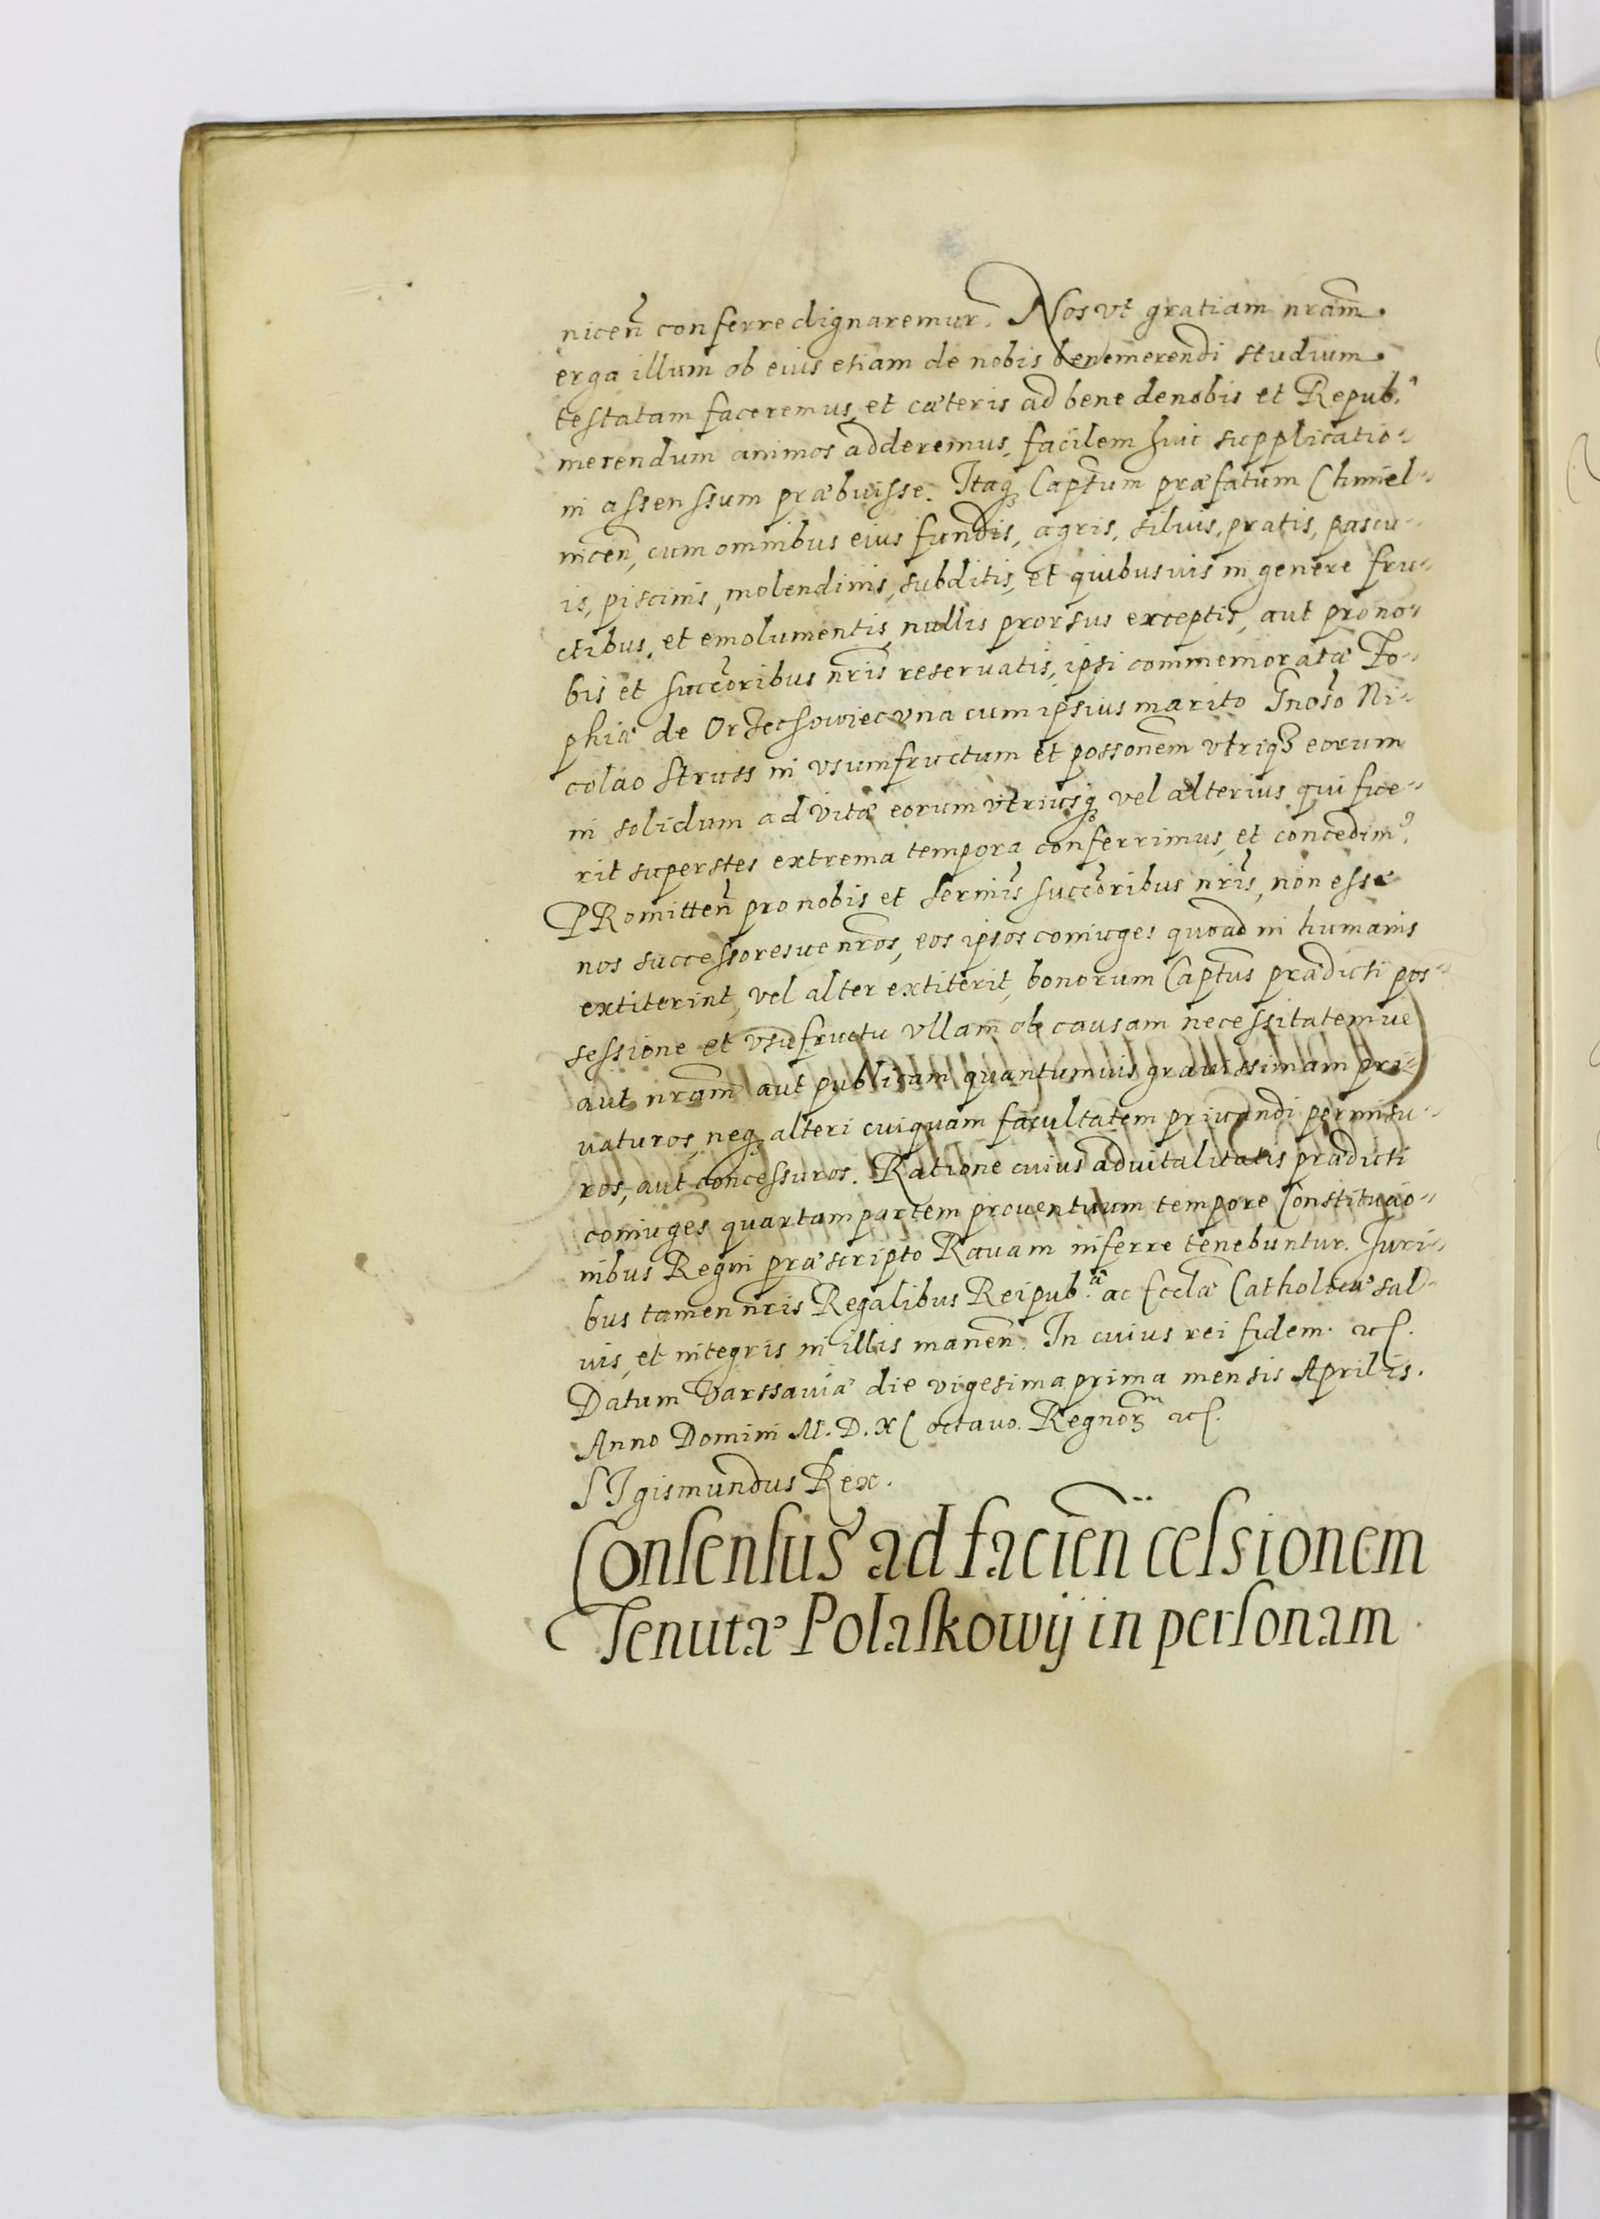 niceñ conferre dignaremur. Nos vt gratiam nram̃.
erga illum ob eius etiam de nobis benemerendi studium.
testatam faceremus, et cæteris ad bene de nobis et Repub.ᵃ
merendum animos adderemus, facilem huic supplicatio-
ni assenssum præbuisse. Itaqꝫ Captum præfatum Chmiel-
niceñ, cum omnibus eius fundis, agris, siluis, pratis, pascu-
is, piscinis, molendinis, subditis, et quibusuis in genere fru-
ctibus, et emolumentis, nullis prorsus exceptis, aut pro no-
bis et succ̃oribus nr̃is reseruatis, ipsi commemoratæ Zo-
phiæ de Orzechowiec vna cum ipsius marito Gnoso Ni-
colao Struss in vsumfructum et possonem vtriqꝫ eorum
in solidum ad vitæ eorum vtriusqꝫ vel alterius qui fue-
rit superstes extrema tempora conferrimus, et concedimꝰ.
PRomitteñ pro nobis et Sermis̃ succ̃oribus nr̃is, non esse
nos successoresue nr̃os, eos ipsos coniuges quoad in humanis
extiterint, vel alter extiterit, bonorum Captus prædicti pos-
sessione et vsufructu vllam ob causam necessitatemue
aut nram̃ aut publicam quantumuis grauissimam pri-
uaturos, neqꝫ alteri cuiquam facultatem priuandi permissu-
ros, aut concessuros. Ratione cuius aduitalitatis prædicti
coniuges quartam partem prouentuum tempore Constitutio-
nibus Regni præscripto Rauam inferre tenebuntur. Juri-
bus tamen nr̃is Regalibus Reipub.ᵃ ac Ecclæ Catholicæ sal-
uis, et integris in illis maneñ. In cuius rei fidem. etc.
Datum Varssauiæ die vigesima prima mensis Aprilis.
Anno Domini M. D. XC octauo. Regnorꝫ etc.
SIgismundus Rex.
Consensus ad facieñ cessionem
Tenutæ Polaskowij in personam